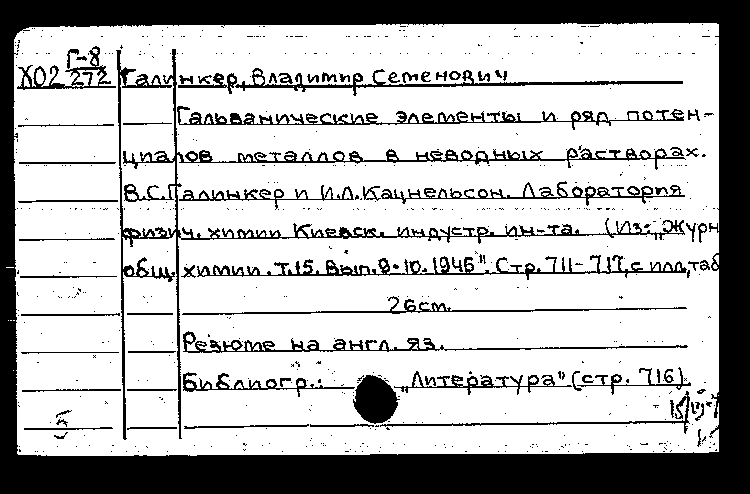 Г-8
Х02 272 Галинкер, Владимир Семенович
Гальванические элементы и ряд потен-
циалов металлов в неводных растворах.
В.С.Галинкер и И.Л.Кацнельсон. Лаборатория
физич. химии Киевск. индустр. ин-та. (Из: „Журн
общ. химии. Т.15. Вып.9-10. 1946". Стр. 711-717, с илл, таб
26см.
Резюме на англ. яз.
Библиогр.: „Литература" (стр. 716)